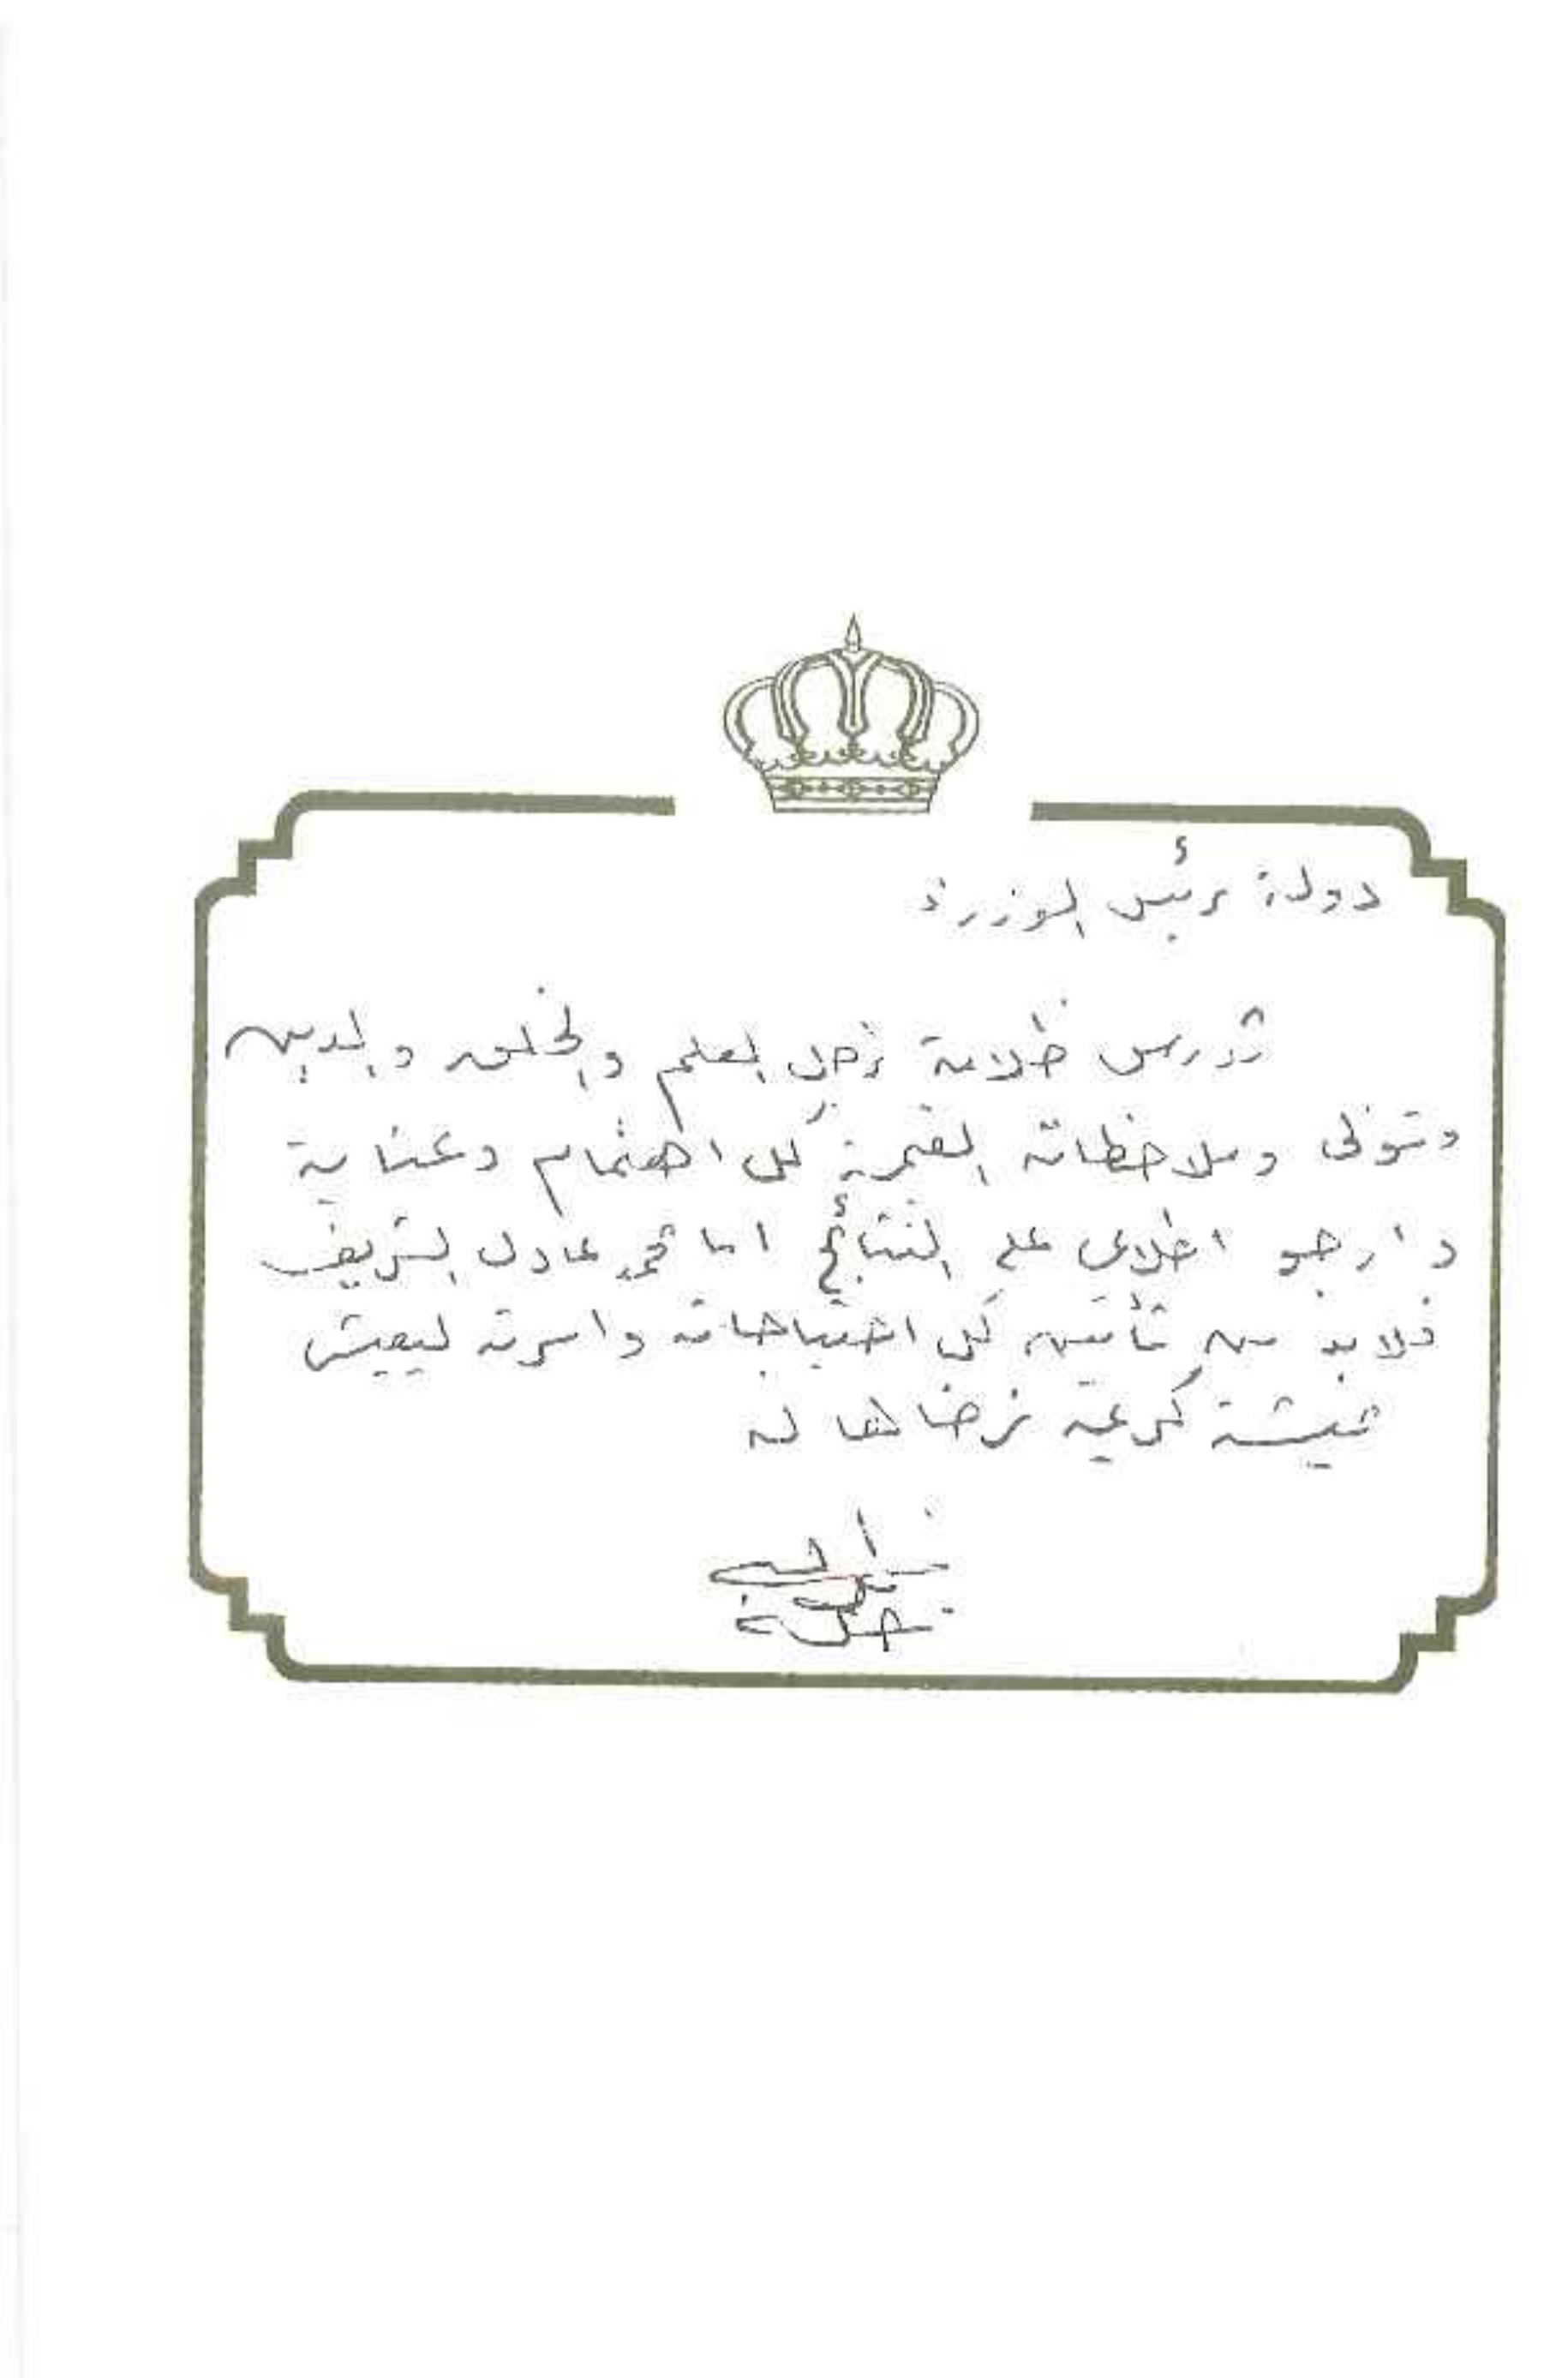 دولة رئيس الوزراء
تدرس ظلامة رجل العلم والخلق والدين
وتولى وملاحظاته القيمة كل اهتمام وعناية
وارجو اطلاعي على النتائج اما محمد عادل الشريف
فلا بد من تأمين كل احتياجاته واسرته ليعيش
عيشة كريمة نرضاها له